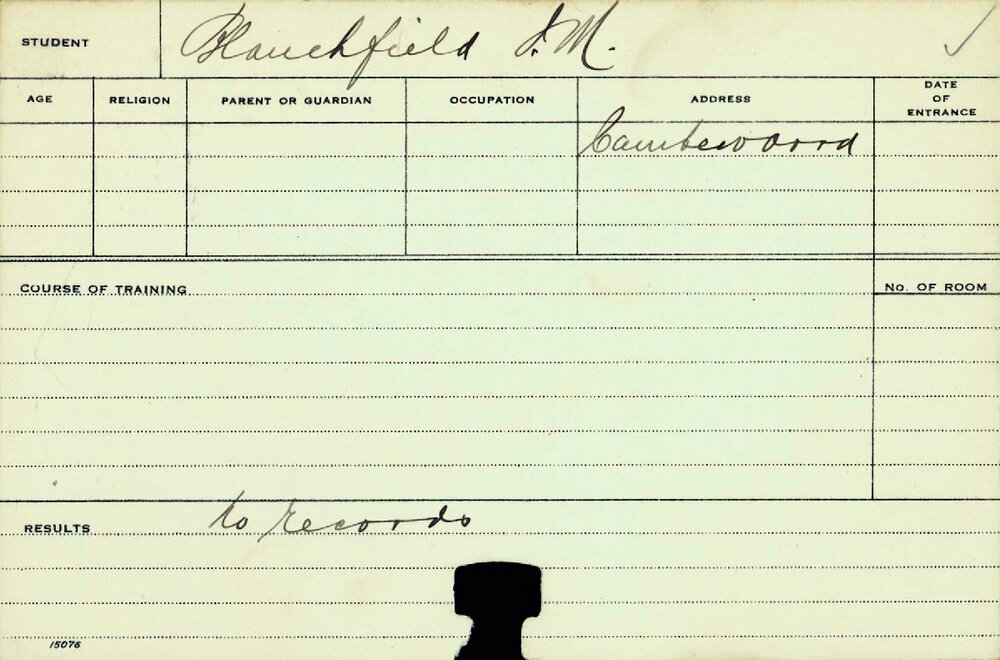 STUDENT Blanchfield J. M. ✓
AGE RELIGION PARENT OR GUARDIAN OCCUPATION ADDRESS DATE OF ENTRANCE
Cambewoord
COURSE OF TRAINING No. OF ROOM
RESULTS No records
15076